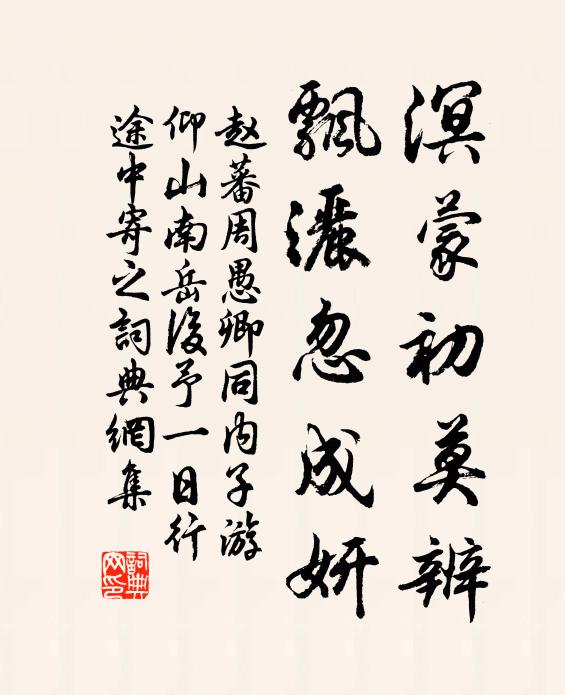 溟蒙初莫辨
飄灑忽成妍
赵蕃周愚卿同内子游
仰山南岳後予一日行
途中寄之詞典網集
詞典網印